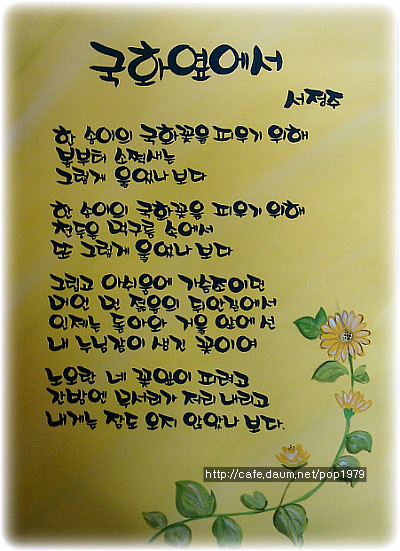 국화옆에서
서정주
한 송이의 국화꽃을 피우기 위해
봄부터 소쩍새는
그렇게 울었나 보다
한 송이의 국화꽃을 피우기 위해
천둥은 먹구름 속에서
또 그렇게 울었나 보다
그립고 아쉬움에 가슴조이던
머언 먼 젊음의 뒤안길에서
인제는 돌아와 거울 앞에 선
내 누님같이 생긴 꽃이여
노오란 네 꽃잎이 피려고
간밤엔 무서리가 저리 내리고
내게는 잠도 오지 않았나 보다.
http://cafe.daum.net/pop1979